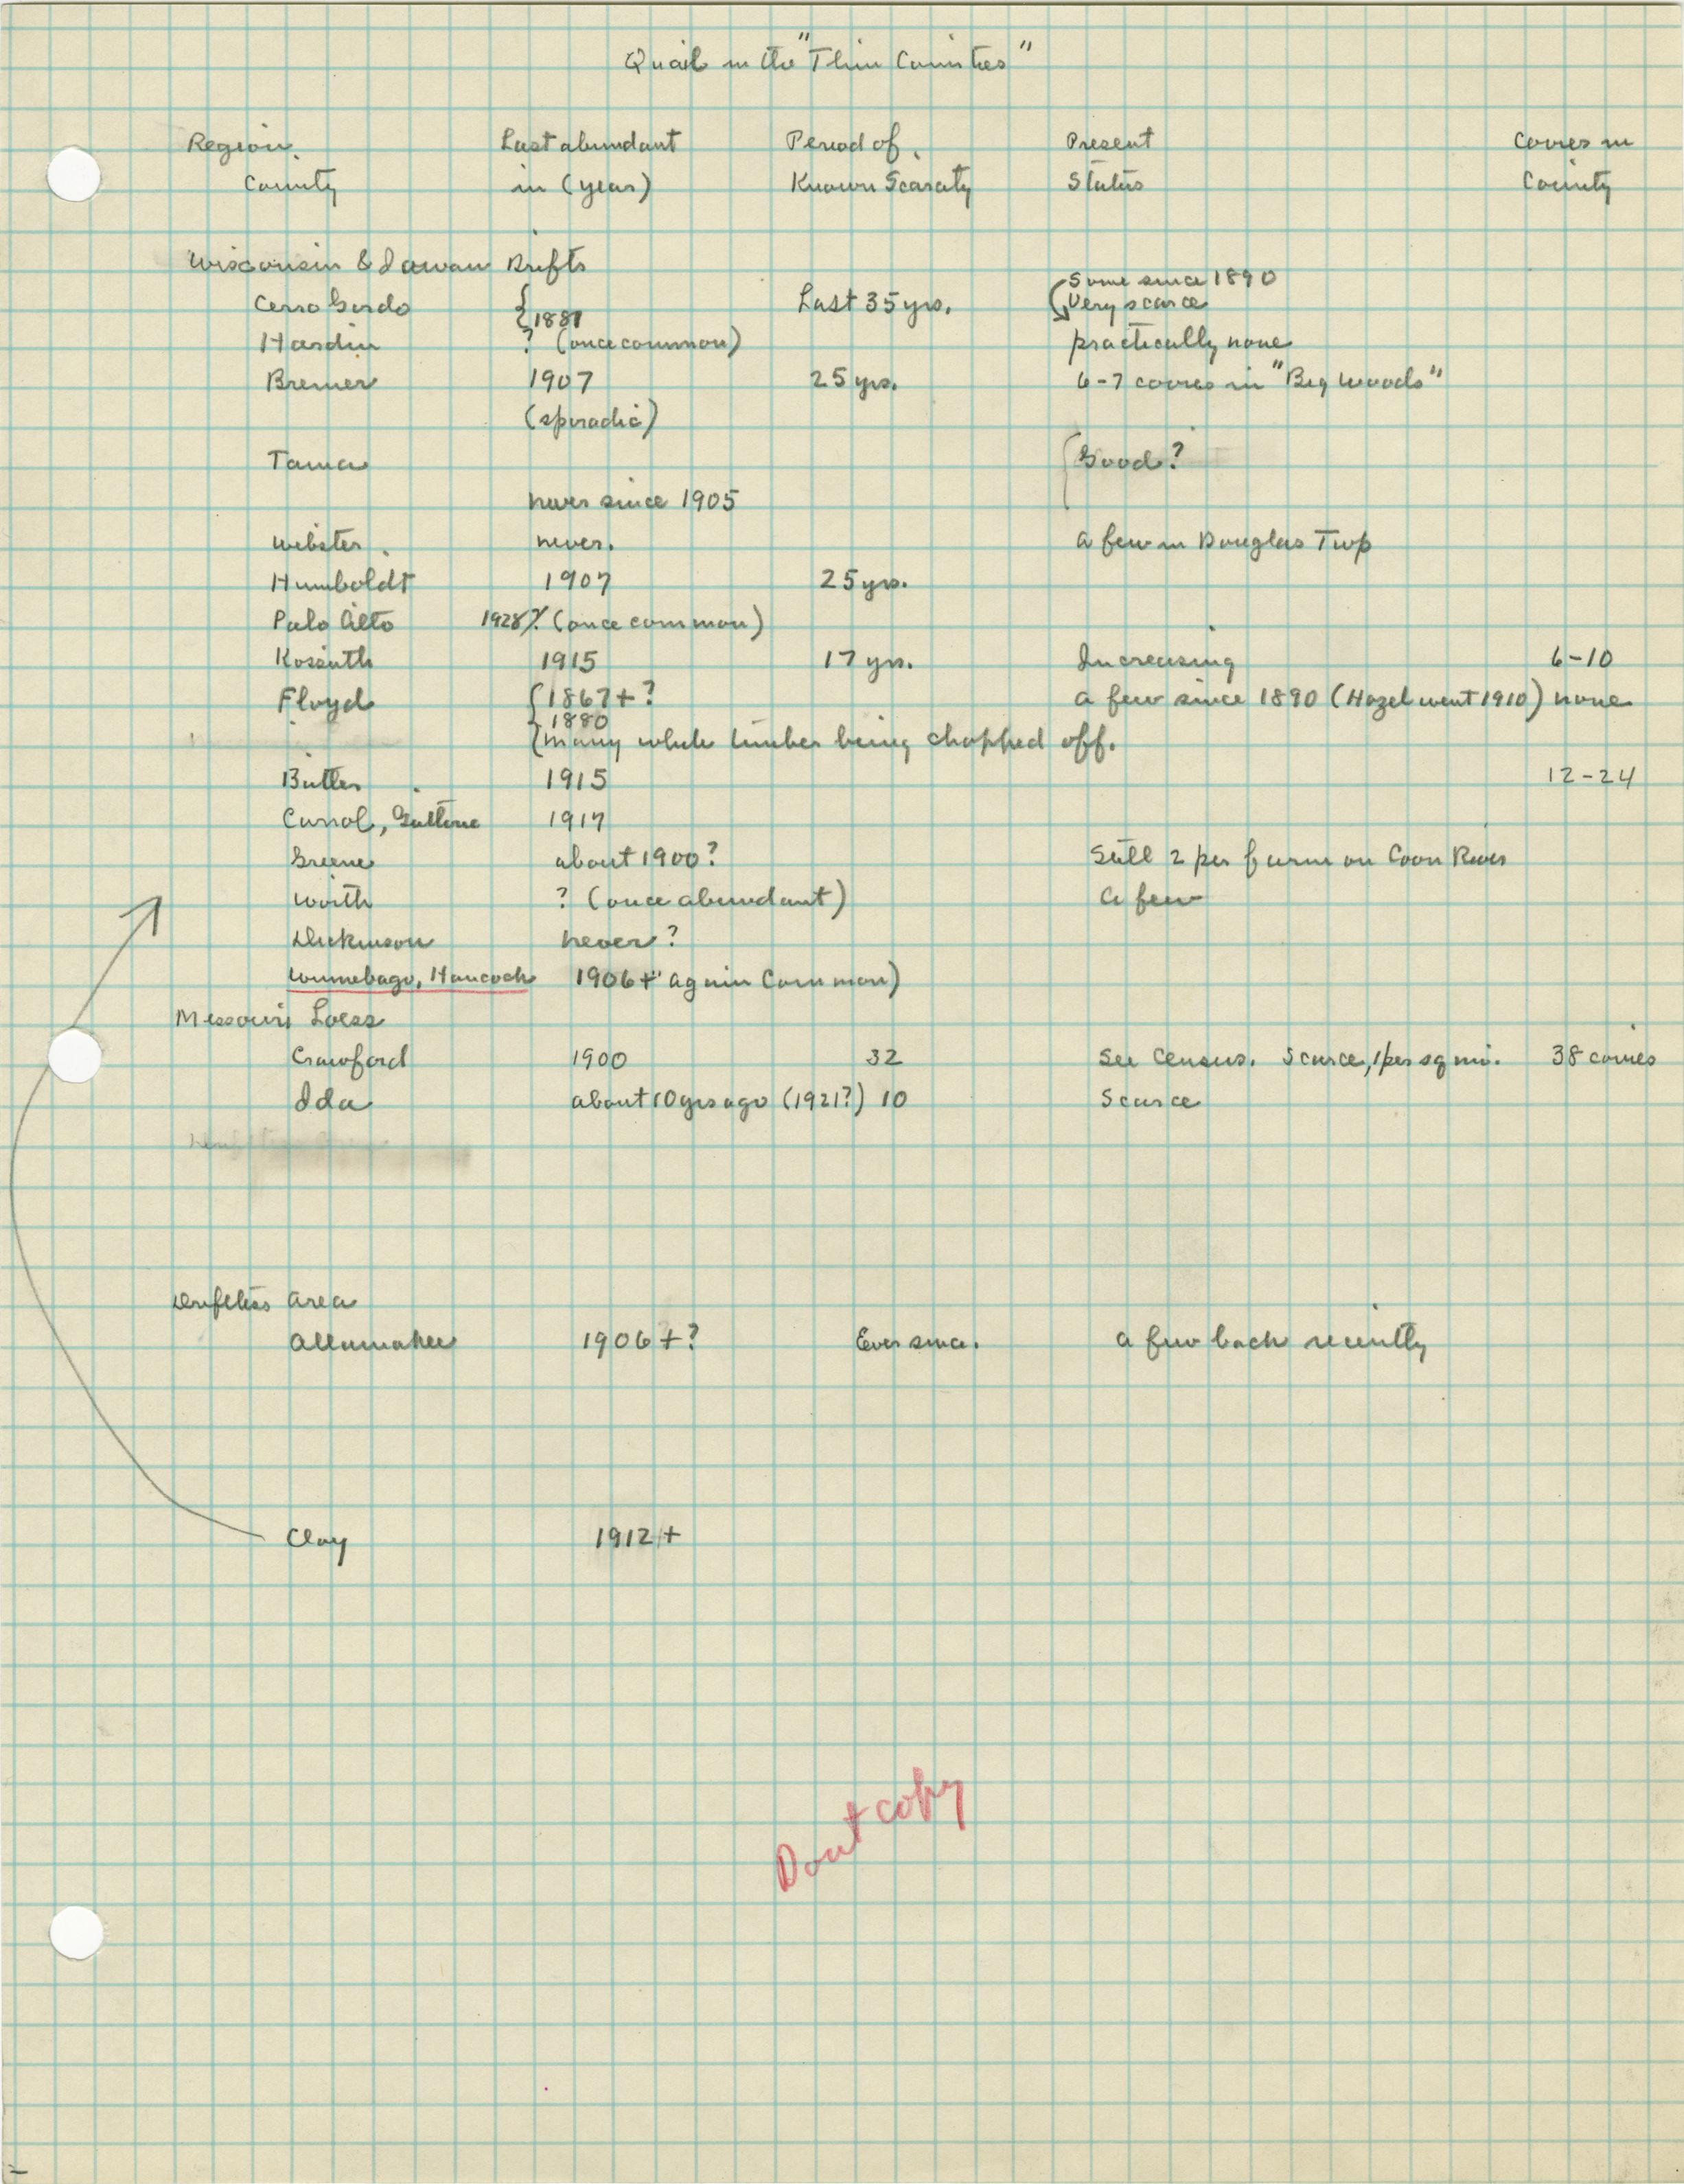 Quail in the "Thin Counties"
Region County Last abundant in (year) Period of Known Scarcity Present Status Covies in County
Wisconsin & Iowan Drifts
Some since 1890
Cerro Gordo {1881 Last 35 yrs. Very scarce
Hardin ? (once common) practically none
Bremer 1907 25 yrs. 6-7 covies in "Big Woods"
(sporadic)
Tama Good?
never since 1905
Webster never. a few in Douglas Twp
Humboldt 1907 25 yrs.
Palo Alto 1928? (once common)
Kossuth 1915 17 yrs. Increasing 6-10
Floyd {1867+? a few since 1890 (Hazel went 1910) none
1880
(many while timber being chopped off.
Butler 1915 12-24
Carrol, 1917
Greene about 1900? Still 2 per farm on Coon River
Worth ? (once abundant) a few
Dickinson never?
Winnebago, Hancock 1906+ again common)
Missouri Loess
Crawford 1900 32 See Census. Scarce, 1 per sq mi. 38 covies
Ida about 10 yrs ago (1921?) 10 Scarce
Driftless Area
Allamakee 1906+? Ever since. a few back recently
Clay 1912+
Dont copy